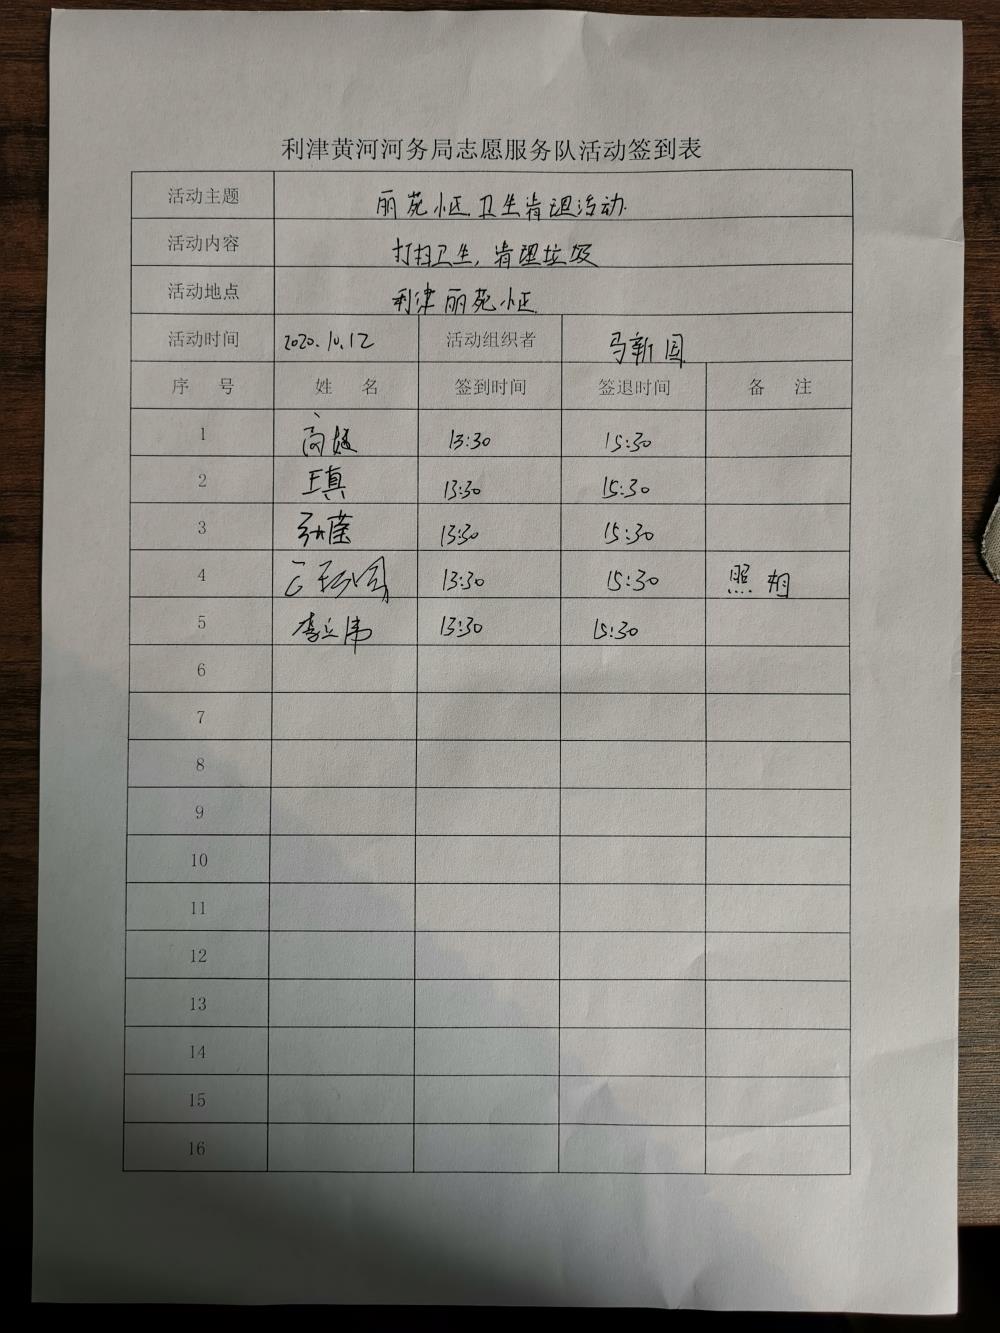 利津黄河河务局志愿服务队活动签到表
活动主题 丽苑小区卫生清理活动
活动内容 打扫卫生,清理垃圾
活动地点 利津丽苑小区
活动时间 2020.10.12 活动组织者 马新国
序号 姓名 签到时间 签退时间 备注
1 高 13:30 15:30
2 王真 13:30 15:30
3 13:30 15:30
4 13:30 15:30 照相
5 李立伟 13:30 15:30
6
7
8
9
10
11
12
13
14
15
16